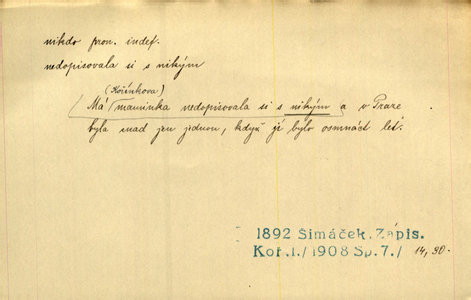 nikdo pron. indef.
nedopisovala si s nikým
(Kořínkova)
Má maminka nedopisovala si s nikým a v Praze
byla snad jen jednou, když jí bylo osmnáct let.
1892 Šimáček. Zápis.
Koř.I./1908 Sp.7./ 14, 30.